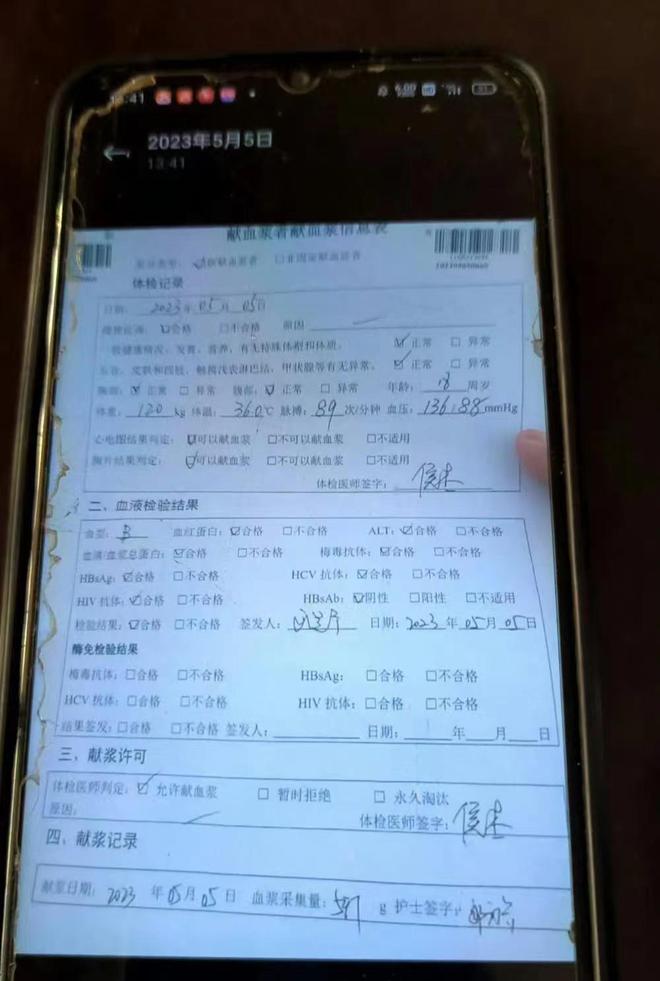 13:41
2023年5月5日
13:41
献血浆者献血浆信息表
体检记录
日期： 2023年 05月 05日
☑合格 □不合格 原因
一般健康情况：发育、营养，有无特殊体型和体质。 ☑正常 □异常
皮肤和四肢，触摸浅表淋巴结，甲状腺等有无异常。 ☑正常 □异常
胸部：☑正常 □异常 腹部：☑正常 □异常 年龄： 周岁
体重：120 kg 体温：36.0℃ 脉搏：89次/分钟 血压：136/88mmHg
心电图结果判定：☑可以献血浆 □不可以献血浆 □不适用
胸片结果判定：☑可以献血浆 □不可以献血浆 □不适用
体检医师签字：
二、血液检验结果
血型：B 血红蛋白：☑合格 □不合格 ALT：☑合格 □不合格
血清/血浆总蛋白：☑合格 □不合格 梅毒抗体：☑合格 □不合格
HBsAg：☑合格 □不合格 HCV 抗体：☑合格 □不合格
HIV 抗体：☑合格 □不合格 HBsAb：☑阴性 □阳性 □不适用
检验结果：☑合格 □不合格 签发人： 日期：2023 年 05月 05日
酶免检验结果
梅毒抗体：□合格 □不合格 HBsAg： □合格 □不合格
HCV 抗体：□合格 □不合格 HIV 抗体：□合格 □不合格
结果签发：□合格 □不合格 签发人： 日期： 年 月 日
三、献浆许可
体检医师判定：☑允许献血浆 □暂时拒绝 □永久淘汰
原因：
体检医师签字：
四、献浆记录
献浆日期：2023 年 05月 05日 血浆采集量： g 护士签字：